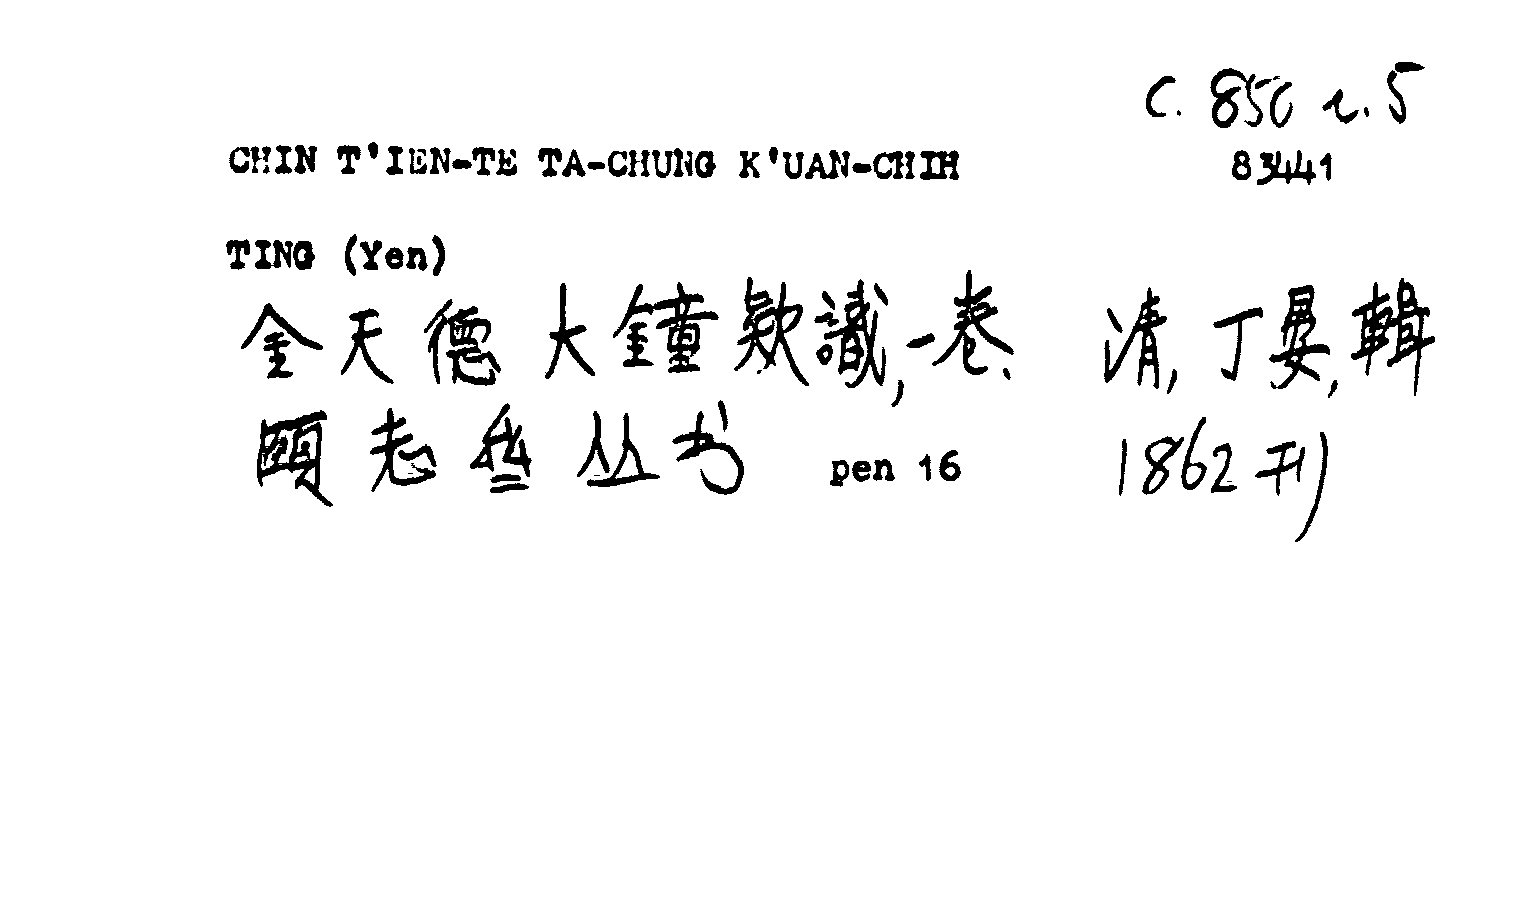 C. 850 r. 5
CHIN T'IEN-TE TA-CHUNG K'UAN-CHIH 83441
TING (Yen)
金天德大鐘款識,一卷. 清,丁晏,輯
頤志丛书 pen 16 1862刊